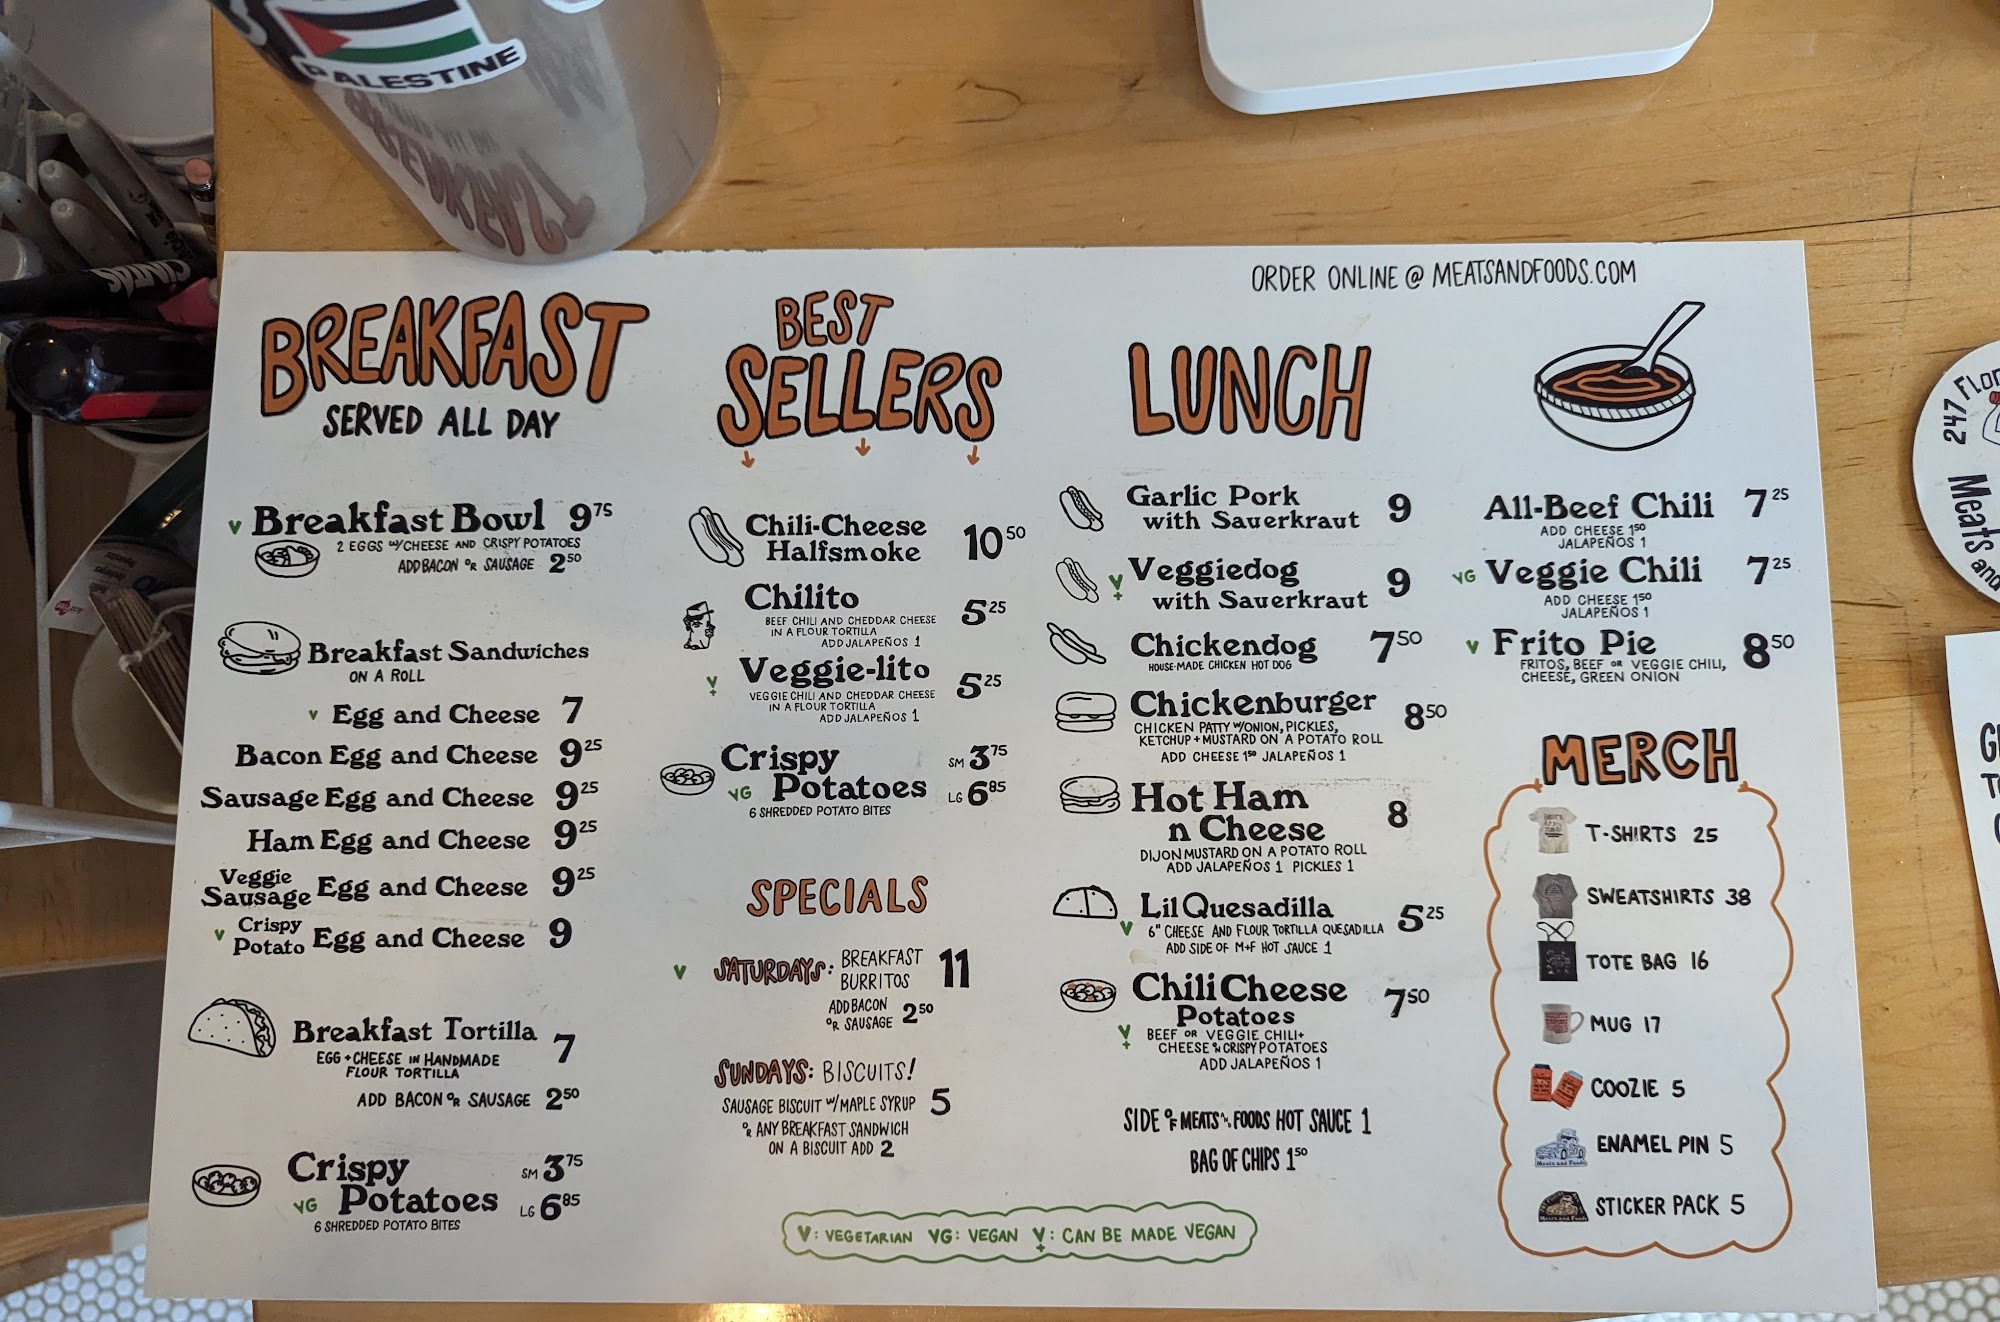 PALESTINE
CINTAS
ORDER ONLINE @ MEATSANDFOODS.COM
BREAKFAST
SERVED ALL DAY
V Breakfast Bowl 9 75
2 EGGS W/ CHEESE AND CRISPY POTATOES
ADD BACON OR SAUSAGE 2 50
Breakfast Sandwiches
ON A ROLL
V Egg and Cheese 7
Bacon Egg and Cheese 9 25
Sausage Egg and Cheese 9 25
Ham Egg and Cheese 9 25
Veggie
V Sausage Egg and Cheese 9 25
V Crispy
Potato Egg and Cheese 9
Breakfast Tortilla 7
EGG + CHEESE IN HANDMADE
FLOUR TORTILLA
ADD BACON OR SAUSAGE 2 50
Crispy SM 3 75
VG Potatoes LG 6 85
6 SHREDDED POTATO BITES
BEST
SELLERS
Chili-Cheese
Halfsmoke 10 50
Chilito 5 25
BEEF CHILI AND CHEDDAR CHEESE
IN A FLOUR TORTILLA
ADD JALAPEÑOS 1
V Veggie-lito 5 25
VEGGIE CHILI AND CHEDDAR CHEESE
IN A FLOUR TORTILLA
ADD JALAPEÑOS 1
Crispy SM 3 75
VG Potatoes LG 6 85
6 SHREDDED POTATO BITES
SPECIALS
V SATURDAYS: BREAKFAST
BURRITOS 11
ADD BACON
OR SAUSAGE 2 50
SUNDAYS: BISCUITS!
SAUSAGE BISCUIT W/ MAPLE SYRUP 5
OR ANY BREAKFAST SANDWICH
ON A BISCUIT ADD 2
LUNCH
Garlic Pork
with Sauerkraut 9
V Veggiedog
with Sauerkraut 9
Chickendog 7 50
HOUSE-MADE CHICKEN HOT DOG
Chickenburger 8 50
CHICKEN PATTY W/ ONION, PICKLES,
KETCHUP + MUSTARD ON A POTATO ROLL
ADD CHEESE 1 50 JALAPEÑOS 1
Hot Ham
n Cheese 8
DIJON MUSTARD ON A POTATO ROLL
ADD JALAPEÑOS 1 PICKLES 1
Lil Quesadilla 5 25
V 6" CHEESE AND FLOUR TORTILLA QUESADILLA
ADD SIDE OF M+F HOT SAUCE 1
Chili Cheese
Potatoes 7 50
V BEEF OR VEGGIE CHILI +
CHEESE ON CRISPY POTATOES
ADD JALAPEÑOS 1
SIDE OF MEATS AND FOODS HOT SAUCE 1
BAG OF CHIPS 1 50
All-Beef Chili 7 25
ADD CHEESE 1 50
JALAPEÑOS 1
VG Veggie Chili 7 25
ADD CHEESE 1 50
JALAPEÑOS 1
V Frito Pie 8 50
FRITOS, BEEF OR VEGGIE CHILI,
CHEESE, GREEN ONION
MERCH
T-SHIRTS 25
SWEATSHIRTS 38
TOTE BAG 16
MUG 17
COOZIE 5
ENAMEL PIN 5
STICKER PACK 5
V: VEGETARIAN VG: VEGAN V: CAN BE MADE VEGAN
247
Meats and